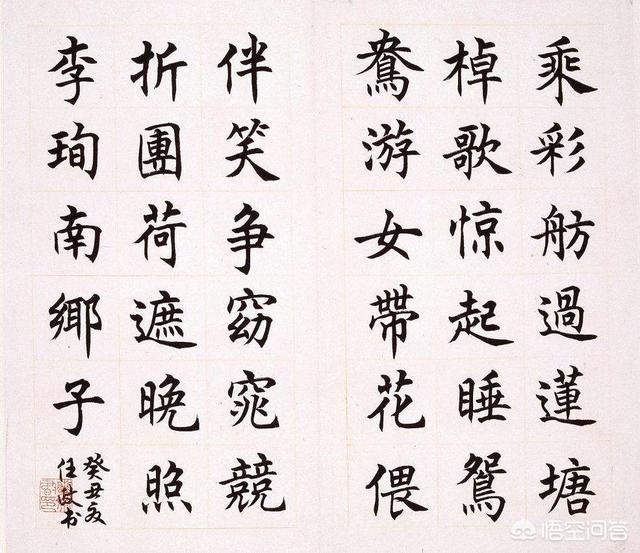 乘彩舫過蓮塘
棹歌惊起睡鴛
鴦游女帶花偎
伴笑争窈窕競
折團荷遮晚照
李珣南鄉子
癸丑夏
任政书
悟空问答